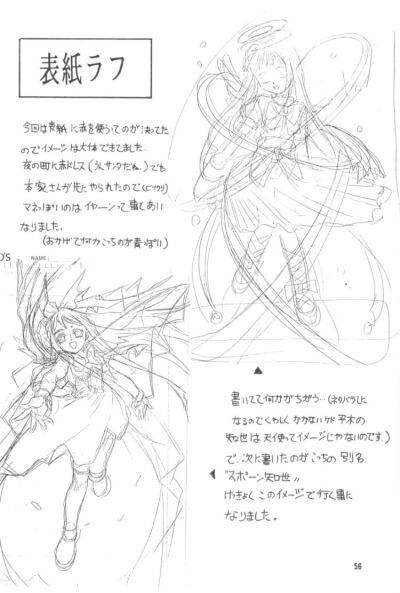 表紙ラフ
今回は表紙に赤を使うってのが決ってた
のでイメージは大体できてました。
夜の町に赤ドレス(うん、サンタだね。)でも
本家さんが先にやられたので(ビックリ)
マネっぽいのはイヤーンって事であい
なりました。
(おかげで何かこっちのが青っぽい)
D'S NAME:
書いてて何かがちがう…(ネタバラしに
なるのでくわしくかかないケド平木の
知世は天使ってイメージじゃないのです。)
で、次に書いたのがこっちの別名
"スポーン知世"
けっきょくこのイメージで行く事に
なりました。
56